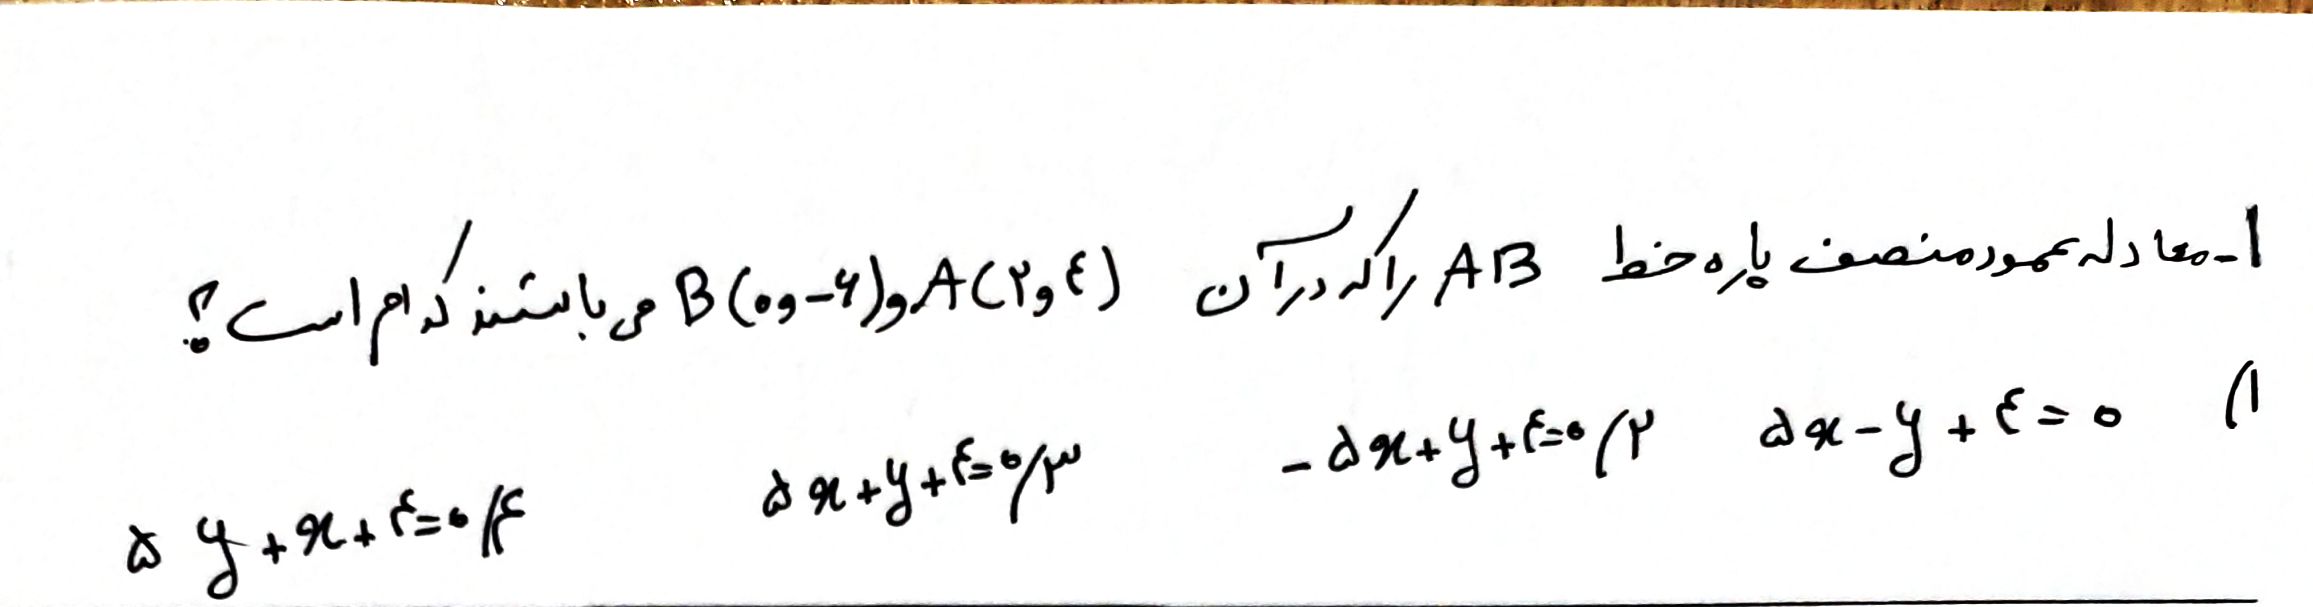 ۱- معادله عمود منصف پاره خط AB را که در آن A(۲و۴) و B(۰و-۶) می باشند کدام است؟
۱) ۵x-y+۴=۰ ۲) -۵x+y+۴=۰ ۳) ۵x+y+۴=۰ ۴) ۵y+x+۴=۰